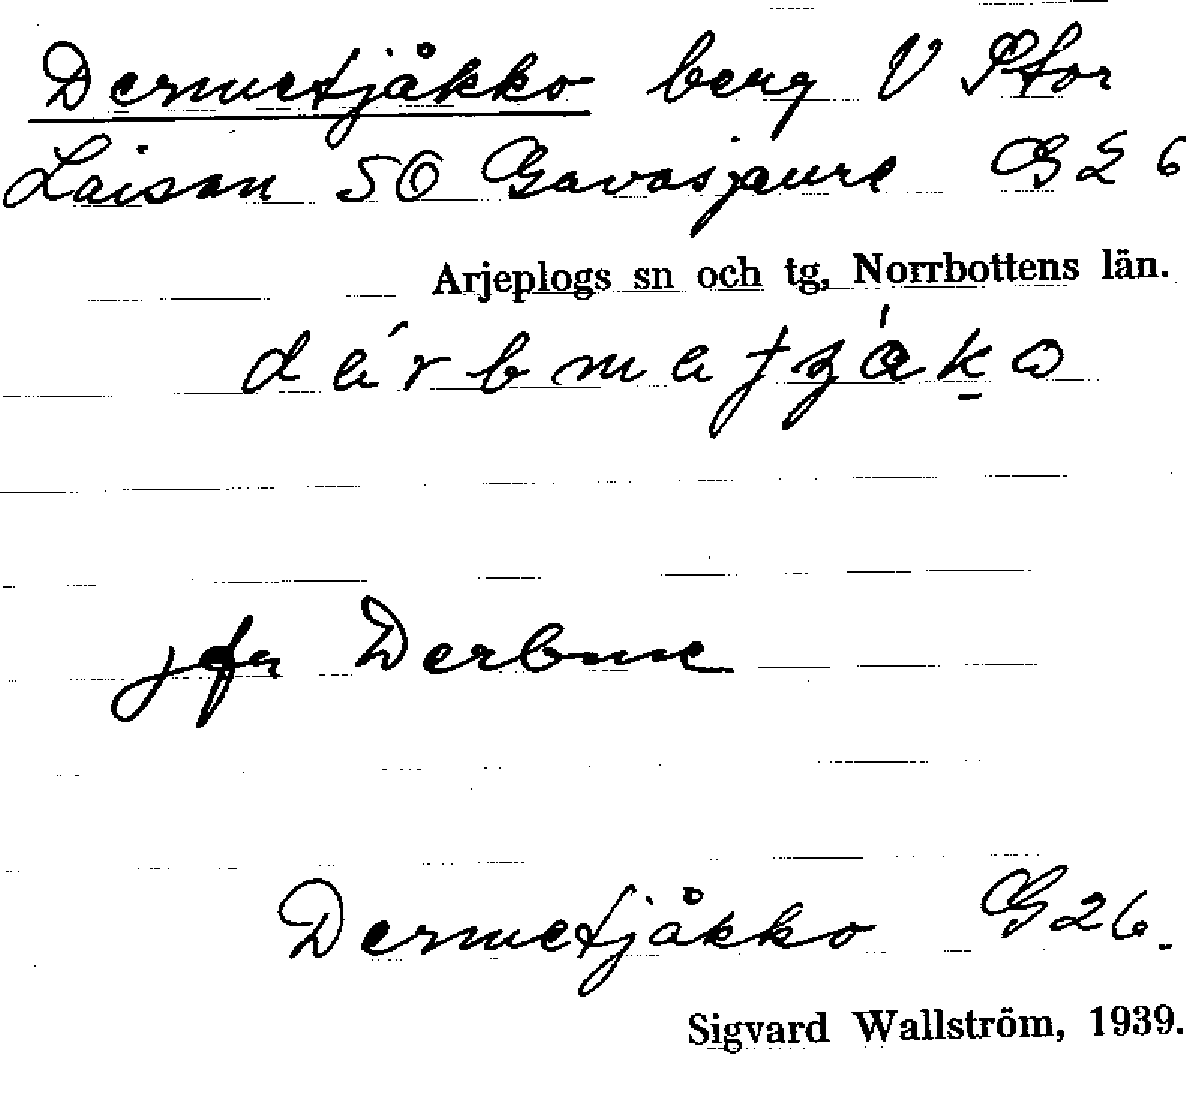 Dermetjåkko berg V Stor
Laisan SO Gavasjaure G 26
Arjeplogs sn och tg, Norrbottens län.
jfr Derbme
Dermetjåkko G 26.
Sigvard Wallström, 1939.